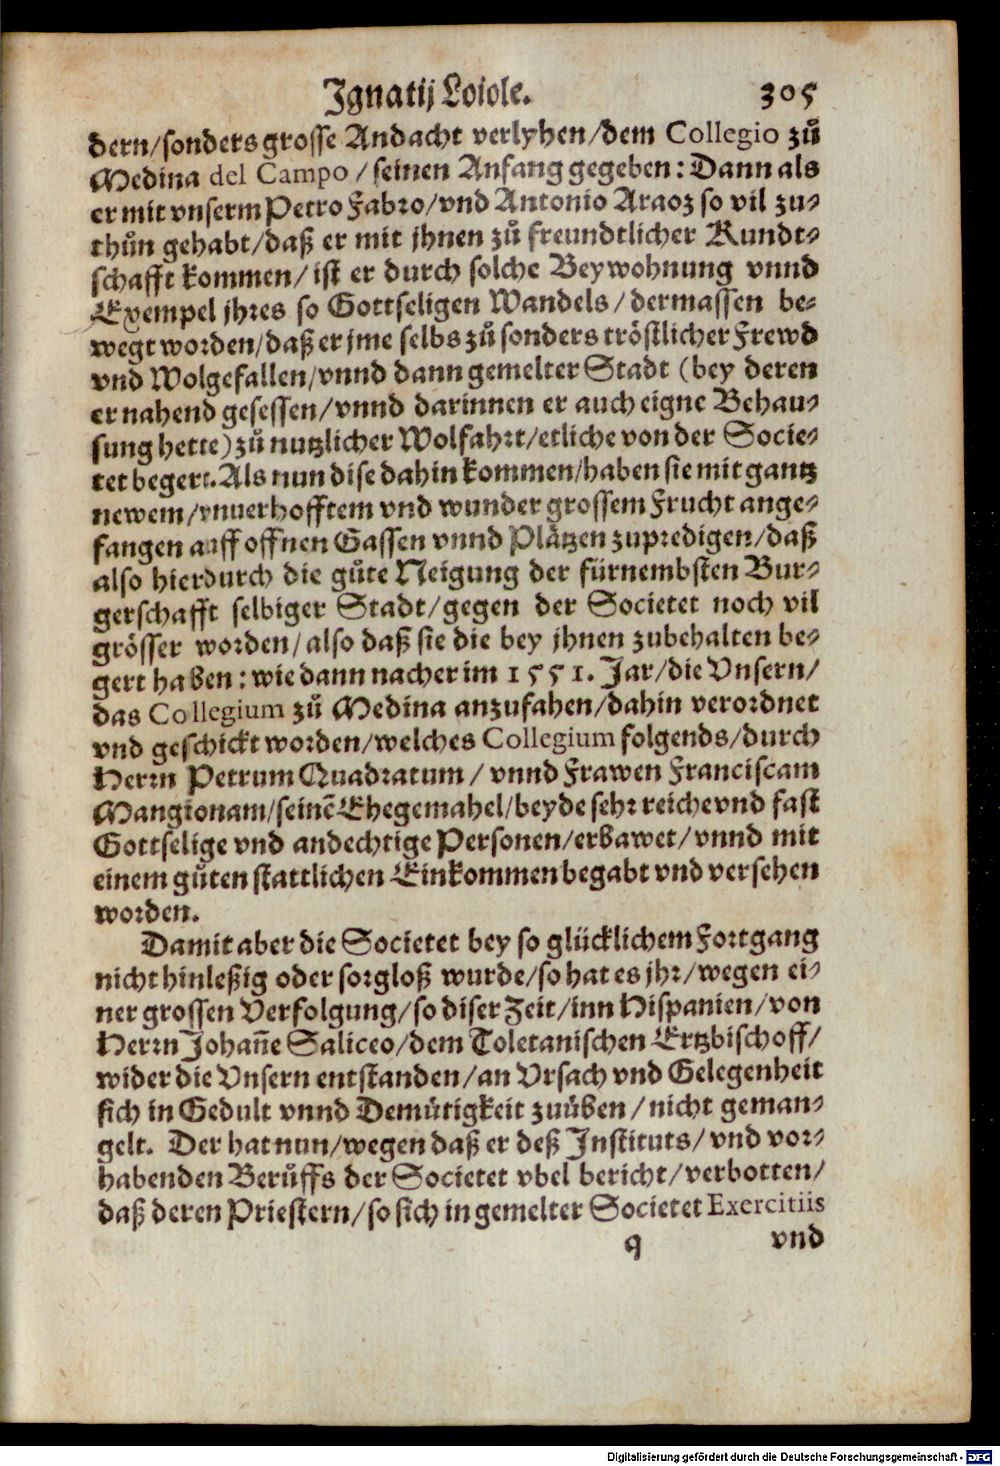 Ignatij Loiole. 305
dern/sonders grosse Andacht verlyhen/dem Collegio zů
Medina del Campo/seinen Anfang gegeben: Dann als
er mit vnserm Petro Fabro/vnd Antonio Araoz so vil zu-
thůn gehabt/daß er mit jhnen zů freundtlicher Kundt-
schafft kommen/ist er durch solche Beywohnung vnnd
Exempel jhres so Gottseligen Wandels/dermassen be-
wegt worden/daß er jme selbs zů sonders tröstlicher Frewd
vnd Wolgefallen/vnnd dann gemelter Stadt (bey deren
er nahend gesessen/vnnd darinnen er auch eigne Behau-
sung hette) zů nutzlicher Wolfahrt/etliche von der Socie-
tet begert. Als nun dise dahin kommen/haben sie mit gantz
newem/vnuerhofftem vnd wunder grossem Frucht ange-
fangen auff offnen Gassen vnnd Plätzen zupredigen/daß
also hierdurch die gůte Neigung der fürnembsten Bur-
gerschafft selbiger Stadt/gegen der Societet noch vil
grösser worden/also daß sie die bey jhnen zubehalten be-
gert haben: wie dann nacher im 1551. Jar/die Vnsern/
das Collegium zů Medina anzufahen/dahin verordnet
vnd geschickt worden/welches Collegium folgends/durch
Herrn Petrum Quadratum/vnnd Frawen Franciscam
Mangionam/seinē Ehegemahel/beyde sehr reiche vnd fast
Gottselige vnd andechtige Personen/erbawet/vnnd mit
einem gůten stattlichen Einkommen begabt vnd versehen
worden.
Damit aber die Societet bey so glücklichem Fortgang
nicht hinleßig oder sorgloß wurde/so hat es jhr/wegen ei-
ner grossen Verfolgung/so diser Zeit/inn Hispanien/von
Herrn Johañe Saliceo/dem Toletanischen Ertzbischoff/
wider die Vnsern entstanden/an Vrsach vnd Gelegenheit
sich in Gedult vnnd Demütigkeit zuüben/nicht geman-
gelt. Der hat nun/wegen daß er deß Instituts/vnd vor-
habenden Berůffs der Societet vbel bericht/verbotten/
daß deren Priestern/so sich in gemelter Societet Exercitiis
q vnd
Digitalisierung gefördert durch die Deutsche Forschungsgemeinschaft - DFG